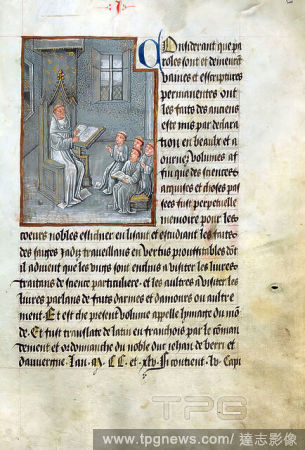 Considerant que pa
roles sont et demeurēt
vaines et escriptures
permanentes ont
les faits des anciens
este mis par declara
tion en beaulx et a
ournez volumes af
fin que des sciences
acquises et choses pas
sees fust perpetuelle
memoire pour les
coeurs nobles en lisant et estudiant les faits
des saiges jadiz traveillans en vertus prouffitables dōt
il advient que les ungs sont enclins a visiter les livres
traitans de science particuliere. et les aultres a visiter les
livres parlans de faits darmes et damours ou aultre
ment. Et est che present volume appelle lymage du mō
de. Et fut translate de latin en franchois par le cōman
dement et ordonnanche du noble duc jehan de berri et
dauvergne. Lan. M. CC. et xlv. Si contient. lv. Capi
TPG
www.tpgnews.com / 達志影像